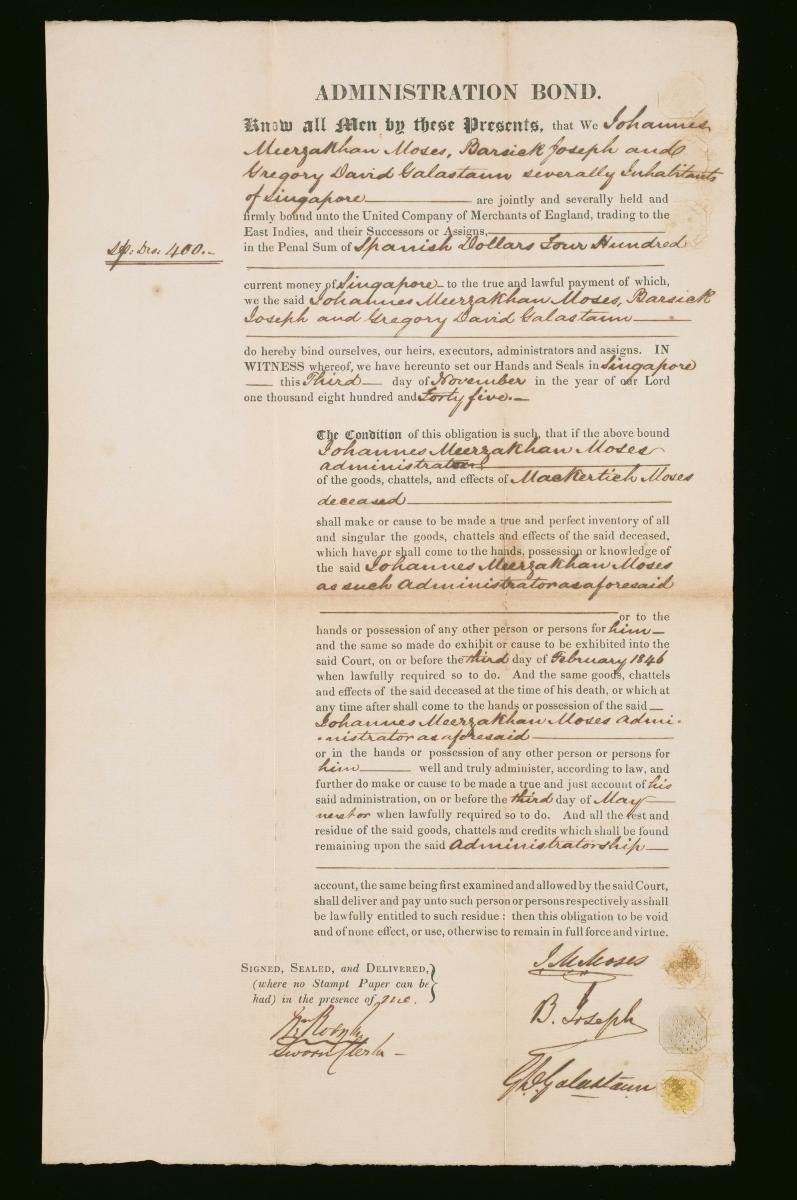 ADMINISTRATION BOND.
Know all Men by these Presents, that We Johannes
Meerzakhan Moses, Barsick Joseph and
Gregory David Galastaun severally Inhabitants
of Singapore are jointly and severally held and
firmly bound unto the United Company of Merchants of England, trading to the
East Indies, and their Successors or Assigns,
Sp: Drs. 400.-
in the Penal Sum of Spanish Dollars Four Hundred
current money of Singapore to the true and lawful payment of which,
we the said Johannes Meerzakhan Moses, Barsick
Joseph and Gregory David Galastaun
do hereby bind ourselves, our heirs, executors, administrators and assigns. IN
WITNESS whereof, we have hereunto set our Hands and Seals in Singapore
this Third day of November in the year of our Lord
one thousand eight hundred and Forty five.
The Condition of this obligation is such, that if the above bound
Johannes Meerzakhan Moses
administrator
of the goods, chattels, and effects of Mackertich Moses
deceased
shall make or cause to be made a true and perfect inventory of all
and singular the goods, chattels and effects of the said deceased,
which have or shall come to the hands, possession or knowledge of
the said Johannes Meerzakhan Moses
as such Administrator as aforesaid
or to the
hands or possession of any other person or persons for him
and the same so made do exhibit or cause to be exhibited into the
said Court, on or before the third day of February 1846
when lawfully required so to do. And the same goods, chattels
and effects of the said deceased at the time of his death, or which at
any time after shall come to the hands or possession of the said
Johannes Meerzakhan Moses Admi-
-nistrator as aforesaid
or in the hands or possession of any other person or persons for
him well and truly administer, according to law, and
further do make or cause to be made a true and just account of his
said administration, on or before the third day of May
next or when lawfully required so to do. And all the rest and
residue of the said goods, chattels and credits which shall be found
remaining upon the said Administratorship
account, the same being first examined and allowed by the said Court,
shall deliver and pay unto such person or persons respectively as shall
be lawfully entitled to such residue : then this obligation to be void
and of none effect, or use, otherwise to remain in full force and virtue.
SIGNED, SEALED, and DELIVERED,
(where no Stampt Paper can be
had) in the presence of me.
Sworn Clerk
J. M. Moses
B. Joseph
G. D. Galastaun